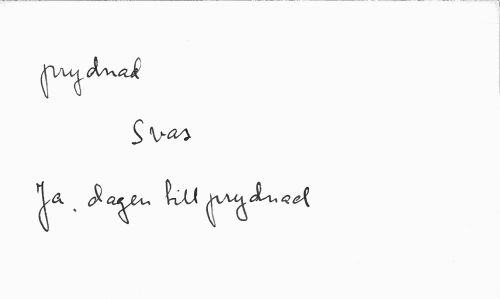 prydnad
Svas
Ja. dagen till prydnad